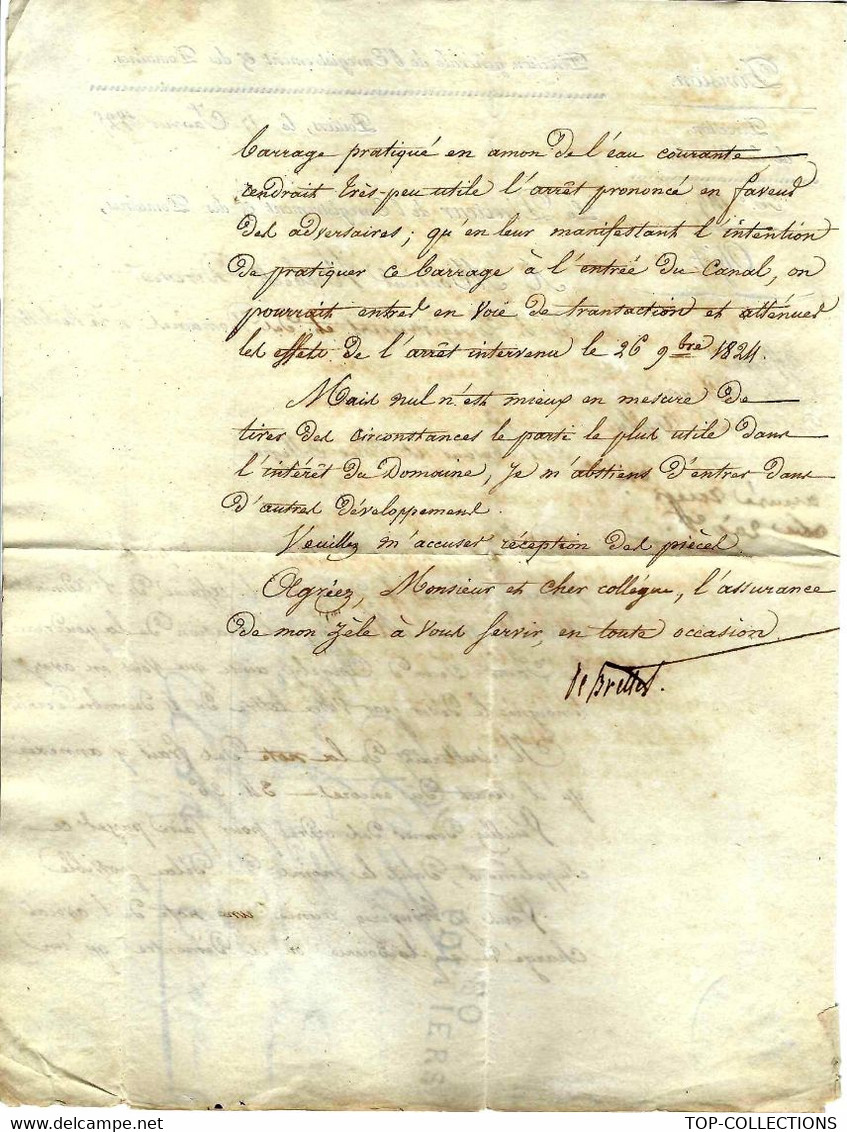 barrage pratiqué en amon de l'eau courante
rendrait très-peu utile l'arrêt prononcé en faveur
des adversaires; qu'en leur manifestant l'intention
de pratiquer ce barrage à l'entrée du Canal, on
pourrait entrer en voie de transaction et atténuer
les effets de l'arrêt intervenu le 26 9bre 1824.
Mais nul n'est mieux en mesure de
tirer des circonstances le parti le plus utile dans
l'intérêt du Domaine, je m'abstiens d'entrer dans
d'autres développement.
Veuillez m'accuser réception des pièces.
Agréez, Monsieur et cher collègue, l'assurance
de mon zèle à vous servir, en toute occasion.
de Brettes.
TOP-COLLECTIONS